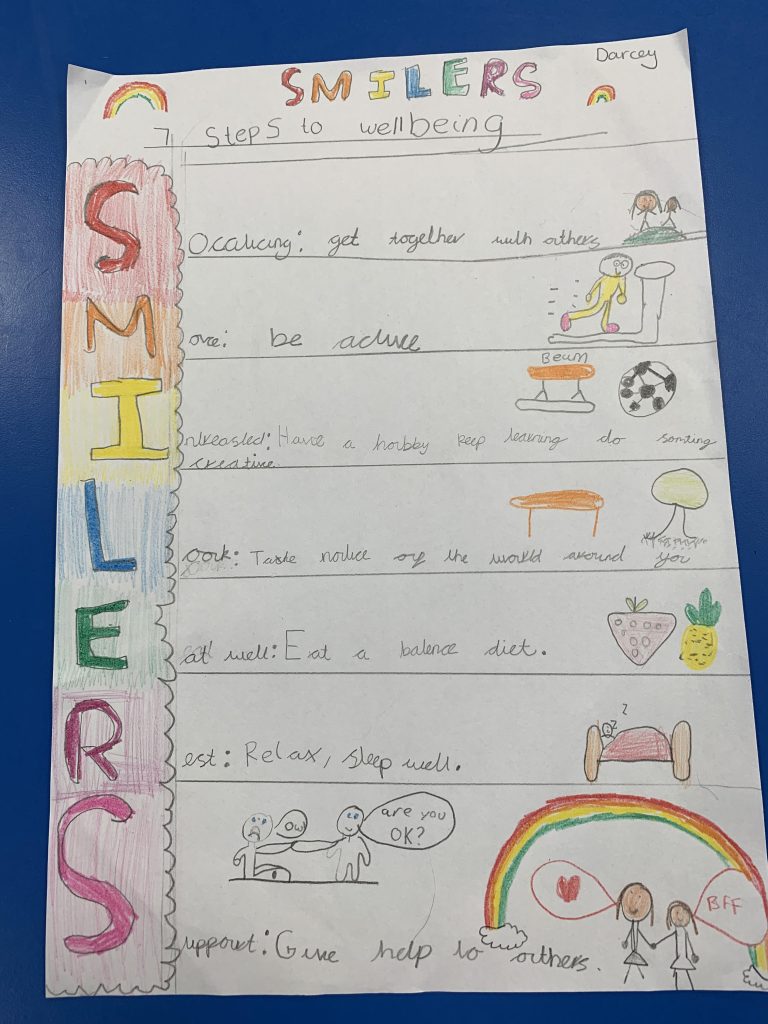 Darcey
SMILERS
7 Steps to wellbeing
Socalicing: get together with others
Move: be active
Beam
Inkreasted: Have a hobby keep learning do somting
creative
Look: Taske notice of the world around you
Eat well: Eat a balence diet.
z z
Rest: Relax, sleep well.
Ow
are you
OK?
BFF
Support: Give help to others.